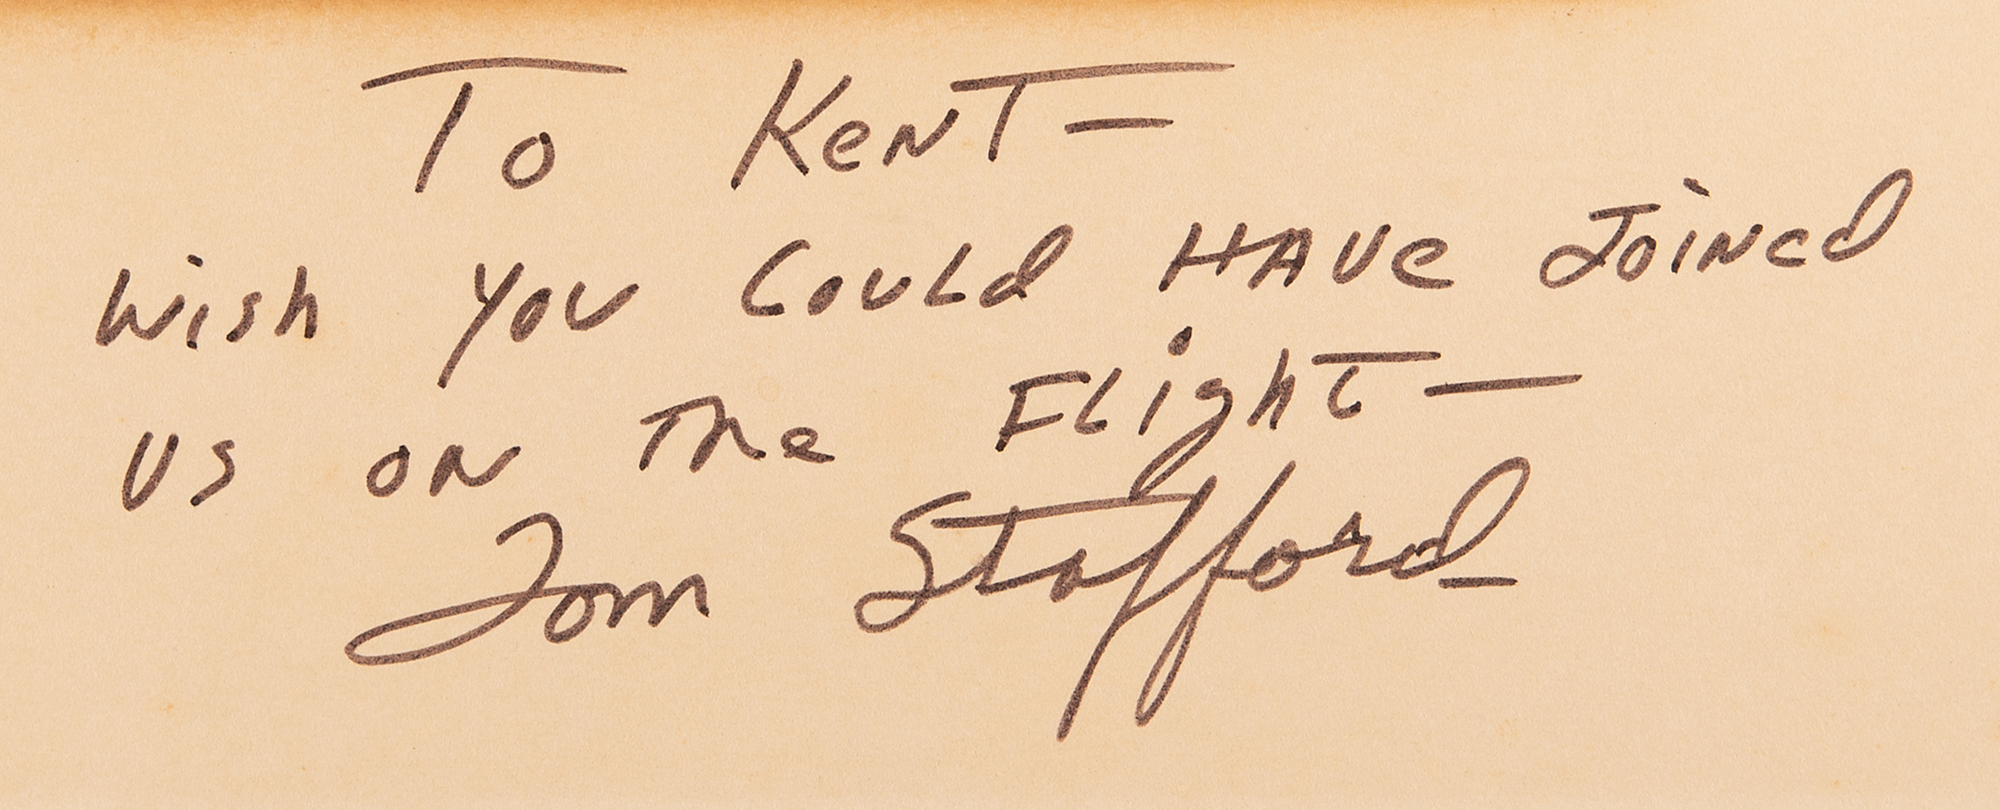 To Kent-
Wish you could have joined
us on the flight-
Tom Stafford